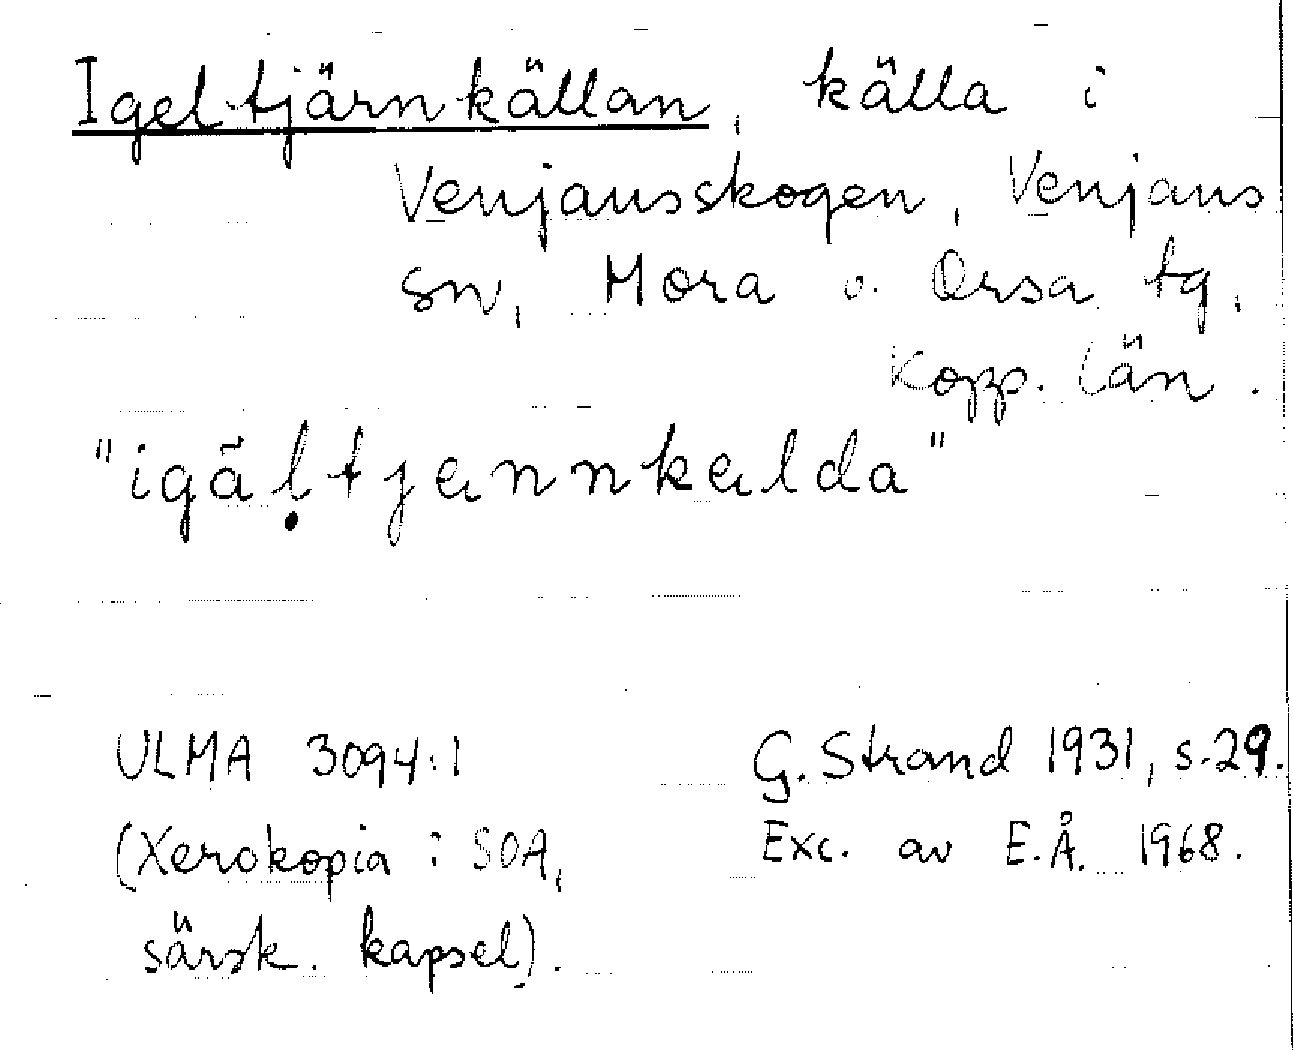 Igeltjärnkällan, källa i
Venjansskogen, Venjans
sn, Mora o. Orsa tg,
Kopp. län.
"igäḷtjännkälda"
ULMA 3094:1 G. Strand 1931, s. 29.
(Xerokopia i SOA, Exc. av E.Å. 1968.
särsk. kapsel).